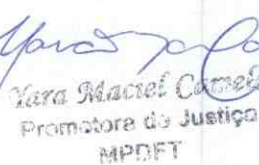 Yara Maciel Camelo
Promotora de Justiça
MPDFT